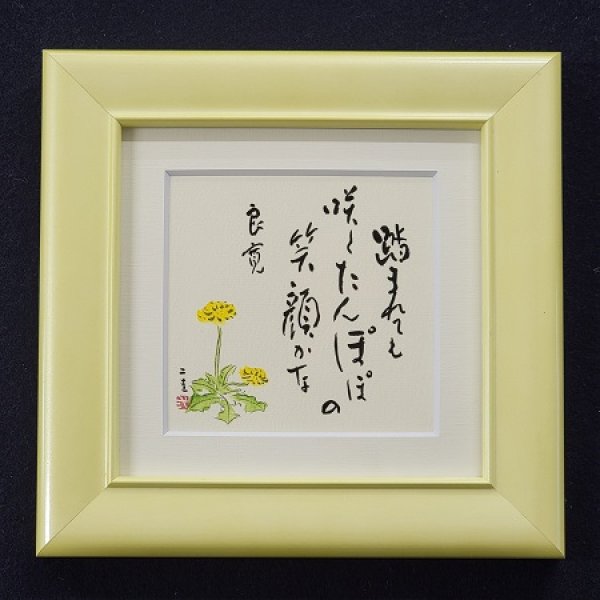 踏まれても
咲くたんぽぽの
笑顔かな
良寛